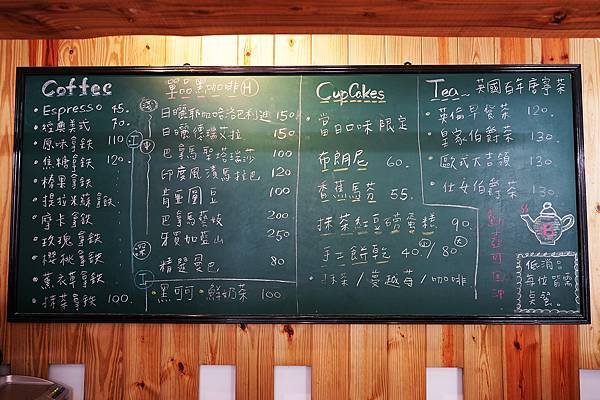 Coffee
Espresso 45.
經典美式 70
原味拿鐵 110
焦糖拿鐵 120
榛果拿鐵
提拉米蘇拿鐵
摩卡拿鐵
玫瑰拿鐵
櫻桃拿鐵
薰衣草拿鐵
抹茶拿鐵 100.
單品黑咖啡 H
淺
日曬耶加啡洛巴利迪 150
日曬德瑞艾拉 150
工
中
巴拿馬聖塔瑞莎 100
印度風漬馬拉巴 120
肯亞圓豆 100
巴拿馬藝妓 200
牙買加藍山 250
深
精選曼巴 80
工
黑可可·鮮奶茶 100
CupCakes
當日口味限定
布朗尼 60.
香蕉馬芬 55.
抹茶紅豆磅蛋糕 90.
手工餅乾 40./80.
小 大
抹茶/蔓越莓/咖啡
Tea 英國百年唐寧茶
英倫早餐茶 120.
皇家伯爵茶 130.
歐式大吉嶺 130.
仕女伯爵茶 130.
可回沖
低消:
每位皆需
貞操。